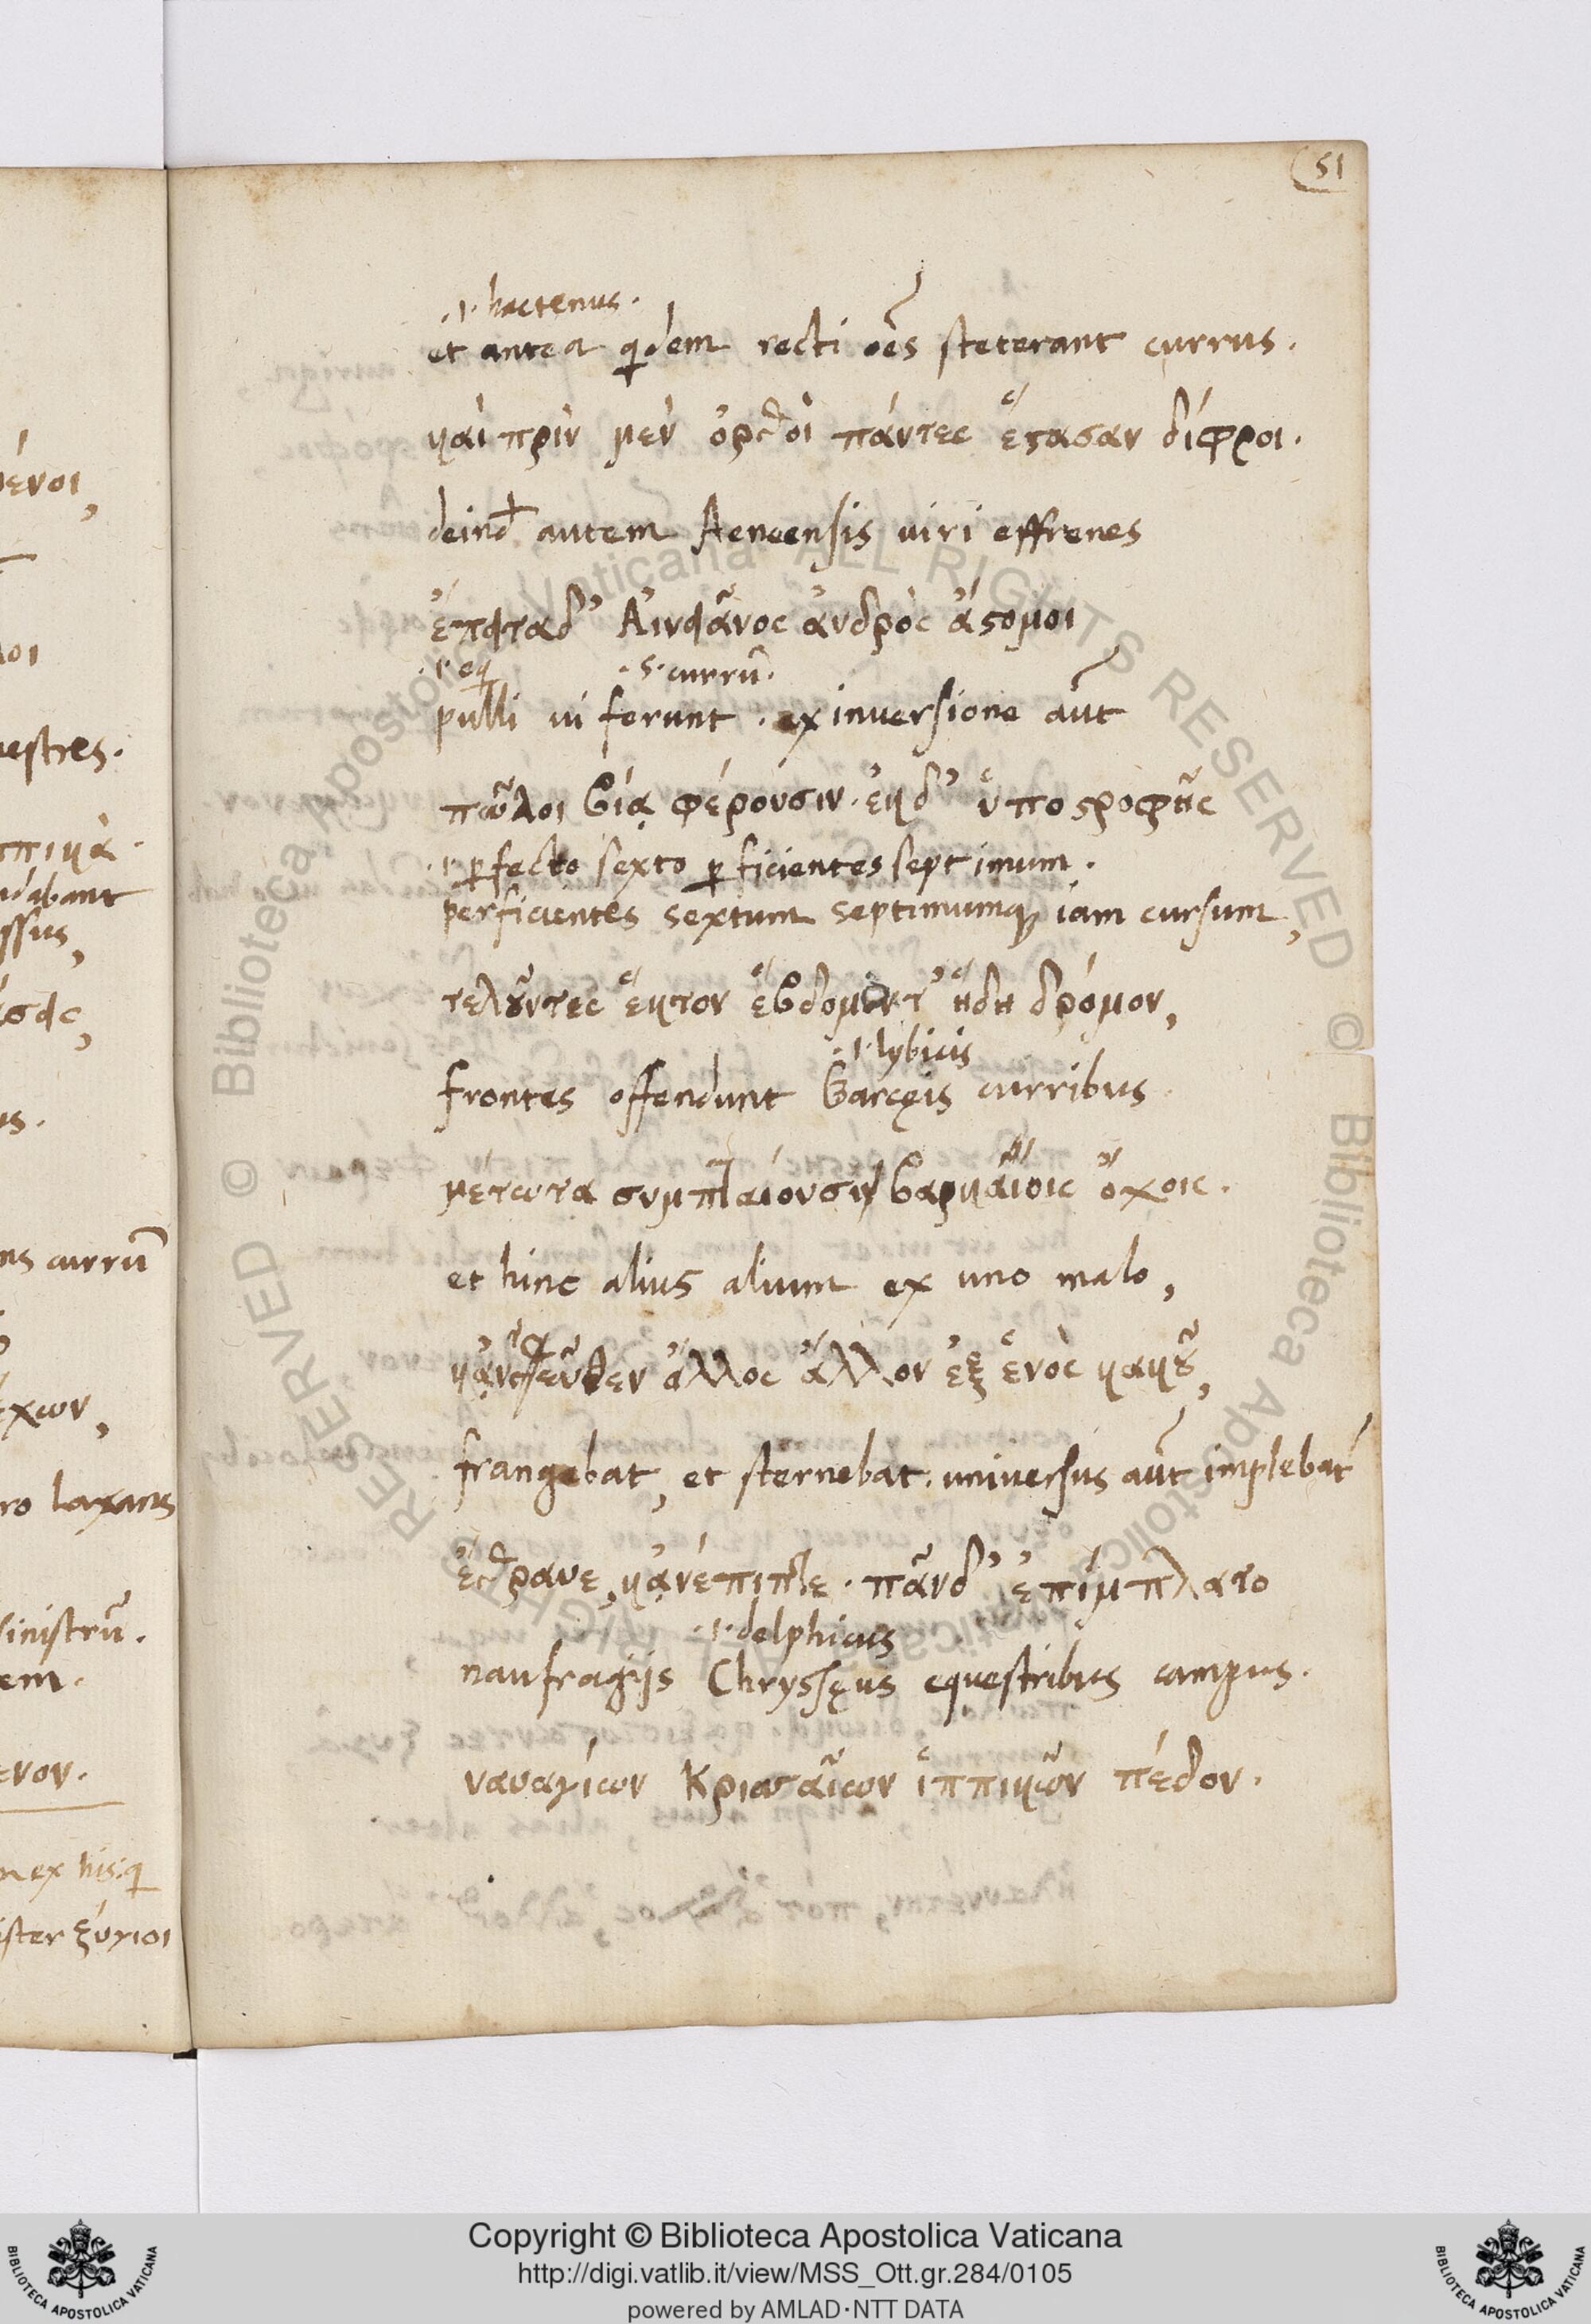 51
.i. hactenus.
et antea qdem recti oe͂s steterant currus.
καὶ πρὶν μὲν ὀρθοὶ πάντες ἕστασαν δίφροι.
deind autem Aeneensis viri effrenes
ἔπειτα δ’ Αἰνειᾶνος ἀνδρὸς ἄστομοι
.i. eq .s. currū.
pulli vi ferunt. ex inversione aūt
πῶλοι βίᾳ φέρουσιν. ἐκ δ’ ὑποστροφῆς
.i. ꝑfecto sexto ꝑficientes septimum.
perficientes sextum septimumq iam cursum,
τελοῦντες ἕκτον ἕβδομόν τ’ ἤδη δρόμον,
.i. lybicis
frontes offendunt Barcęis curribus.
μέτωπα συμπαίουσι Βαρκαίοις ὄχοις.
et hinc alius alium ex uno malo,
κἀντεῦθεν ἄλλος ἄλλον ἐξ ἑνὸς κακοῦ,
frangebat, et sternebat. universus aūt implebat
ἔθραυε, κἀνέπιπτε. πᾶν δ’ ἐπίμπλατο
.i. delphicus
naufragijs Chryssęus equestribus campus.
ναυαγίων Κρισαίων ἱππικῶν πέδον.
μένοι,
λοι
uestres.
ππικὰ.
ndabant
ssus,
us.
ns currū
έχων,
ro laxans
sinistrū.
em.
ενον.
n ex his q
ister ξύγιοι
Copyright © Biblioteca Apostolica Vaticana
http://digi.vatlib.it/view/MSS_Ott.gr.284/0105
powered by AMLAD·NTT DATA